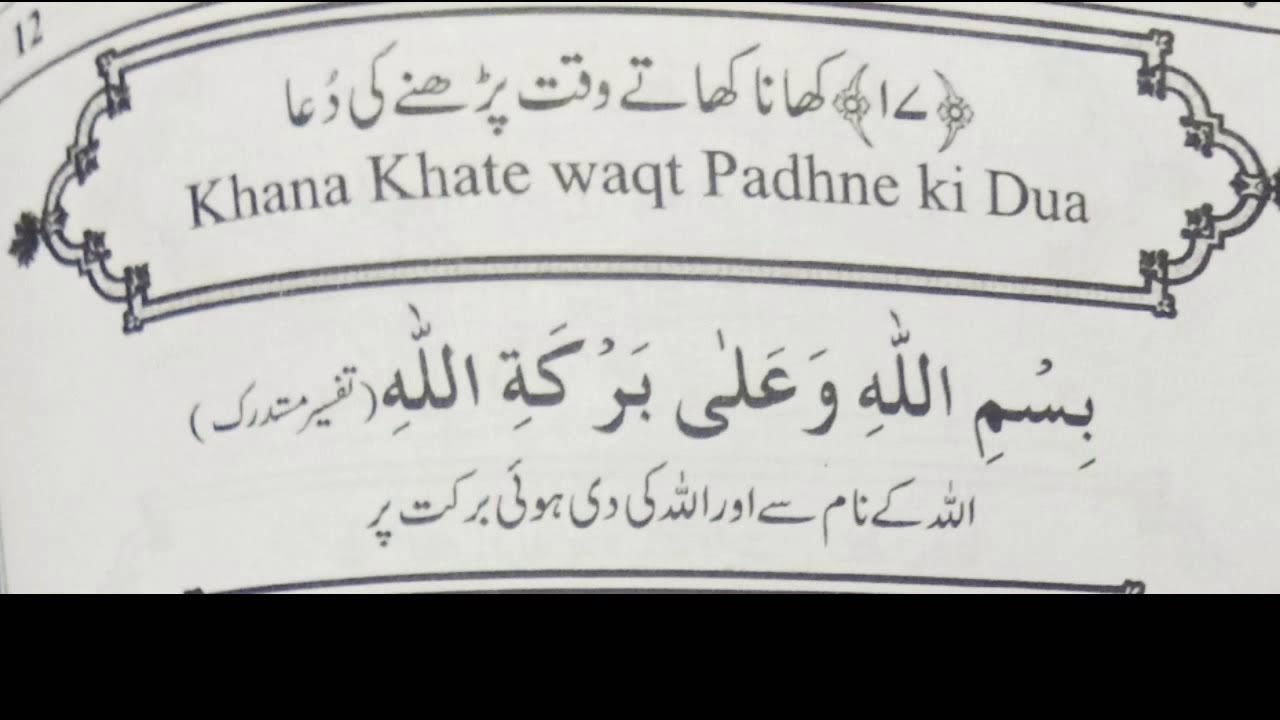 12
﴿۱۷﴾ کھانا کھاتے وقت پڑھنے کی دُعا
Khana Khate waqt Padhne ki Dua
بِسْمِ اللّٰهِ وَعَلٰى بَرْكَةِ اللّٰهِ (تفسیر مستدرک)
اللہ کے نام سے اور اللہ کی دی ہوئی برکت پر